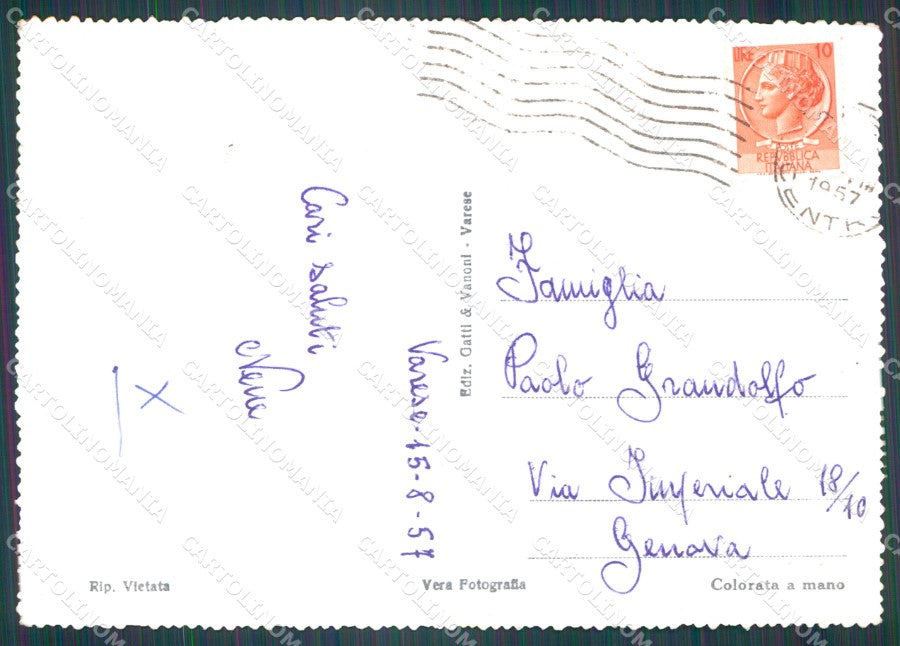 LIRE 10
POSTE
REPVBBLICA
ITALIANA
1957
Cari saluti
Varese-15-8-57
Ediz. Gatti & Vanoni - Varese
Famiglia
Paolo Grandolfo
Via Imperiale 18/10
Genova
Rip. Vietata
Vera Fotografia
Colorata a mano
CARTOLINOMANIA